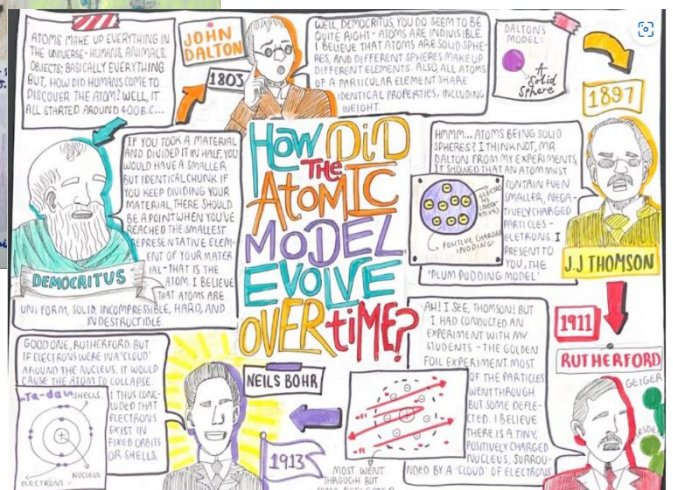 ATOMS MAKE UP EVERYTHING IN
THE UNIVERSE - HUMANS, ANIMALS,
OBJECTS; BASICALLY EVERYTHING.
BUT, HOW DID HUMANS COME TO
DISCOVER THE ATOM? WELL, IT
ALL STARTED AROUND 400B.C...
JOHN
DALTON
1803
WELL, DEMOCRITUS YOU DO SEEM TO BE
QUITE RIGHT - ATOMS ARE INDIVISIBLE.
I BELIEVE THAT ATOMS ARE SOLID SPHE-
RES, AND DIFFERENT SPHERES MAKE UP
DIFFERENT ELEMENTS. ALSO ALL ATOMS
OF A PARTICULAR ELEMENT SHARE
IDENTICAL PROPERTIES, INCLUDING
WEIGHT.
DALTON'S
MODEL:
A
Solid
Sphere
1897
IF YOU TOOK A MATERIAL
AND DIVIDED IT IN HALF, YOU
WOULD HAVE A SMALLER,
BUT IDENTICAL CHUNK. IF
YOU KEEP DIVIDING YOUR
MATERIAL, THERE SHOULD
BE A POINT WHEN YOU'VE
REACHED THE SMALLEST
REPRESENTATIVE ELEM-
ENT OF YOUR MATER
IAL - THAT IS THE
ATOM. I BELIEVE
THAT ATOMS ARE
UNIFORM, SOLID, INCOMPRESSIBLE, HARD, AND
INDESTRUCTIBLE.
DEMOCRITUS
HOW DID
THE
ATOMIC
MODEL
EVOLVE
OVER tiME?
HMMM... ATOMS BEING SOLID
SPHERES? I THINK NOT, MR
DALTON. FROM MY EXPERIMENTS,
IT SHOWED THAT AN ATOM MUST
CONTAIN EVEN
SMALLER, NEGA-
TIVELY CHARGED
PARTICLES -
ELETRONS. I
PRESENT TO
YOU, THE
'PLUM PUDDING MODEL'
POSITIVE CHARGE
(PUDDING)
J.J THOMSON
1911
RUTHERFORD
GEIGER
AH! I SEE, THOMSON! BUT
I HAD CONDUCTED AN
EXPERIMENT WITH MY
STUDENTS - THE GOLDEN
FOIL EXPERIMENT. MOST
OF THE PARTICLES
WENT THROUGH
BUT SOME DEFLE-
CTED. I BELIEVE
THERE IS A TINY,
POSITIVELY CHARGED
NUCLEUS, SURROU-
NDED BY A 'CLOUD' OF ELECTRONS
MOST WENT
THROUGH BUT
NEILS BOHR
1913
GOOD ONE, RUTHERFORD. BUT
IF ELECTRONS WERE IN A 'CLOUD'
AROUND THE NUCLEUS, IT WOULD
CAUSE THE ATOM TO COLLAPSE.
I THUS CONC-
LUDED THAT
ELECTRONS
EXIST IN
FIXED ORBITS
OR SHELLS.
Ta-dah
SHELLS
NUCLEUS
ELECTRONS